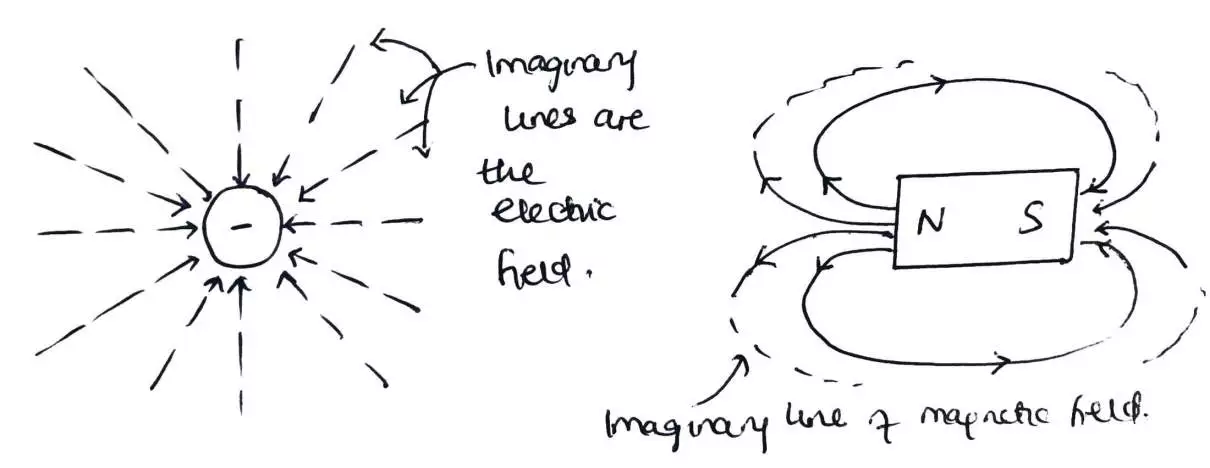 Imaginary
lines are
the
electric
field.
-
N S
Imaginary line of magnetic field.